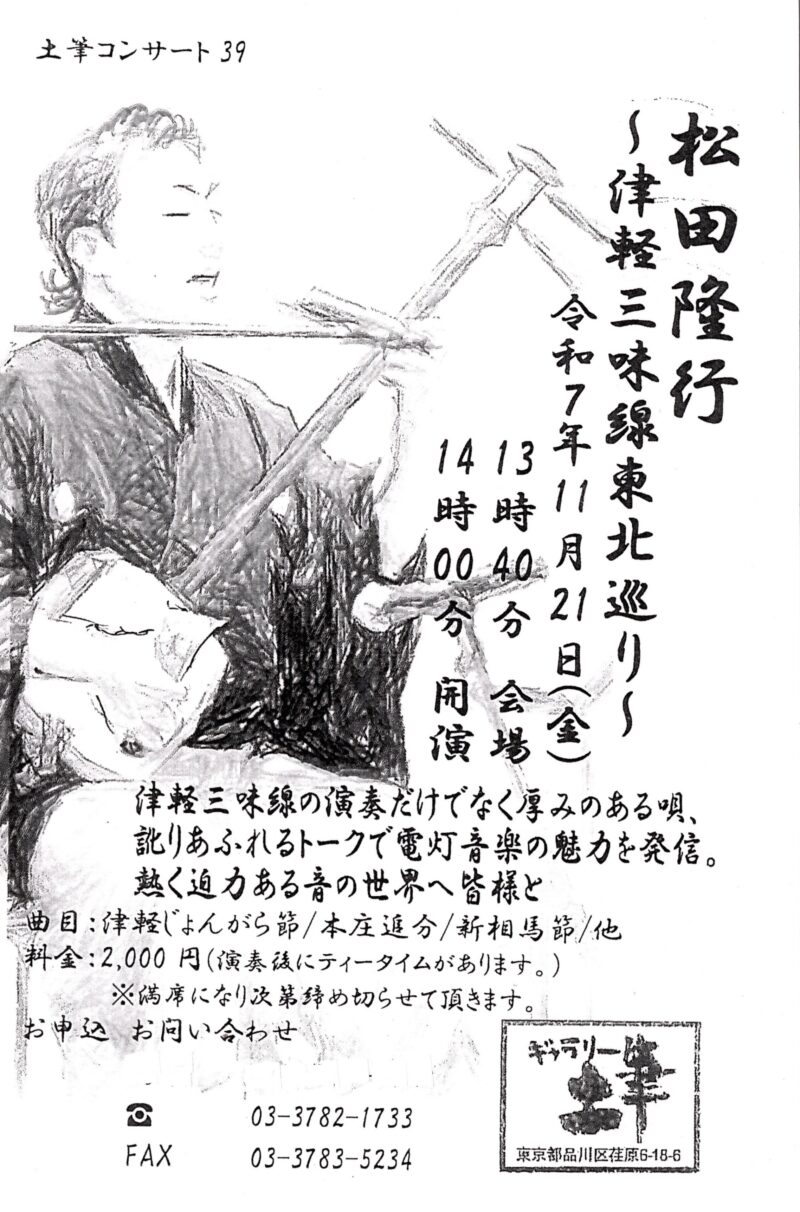 土筆コンサート39
松田隆行
～津軽三味線東北巡り～
令和7年11月21日(金)
13時40分 会場
14時00分 開演
津軽三味線の演奏だけでなく厚みのある唄、
訛りあふれるトークで電灯音楽の魅力を発信。
熱く迫力ある音の世界へ皆様と
曲目:津軽じょんがら節/本庄追分/新相馬節/他
料金:2,000 円(演奏後にティータイムがあります。)
※満席になり次第締め切らせて頂きます。
お申込 お問い合わせ
☎ 03-3782-1733
FAX 03-3783-5234
ギャラリー
土筆
東京都品川区荏原6-18-6